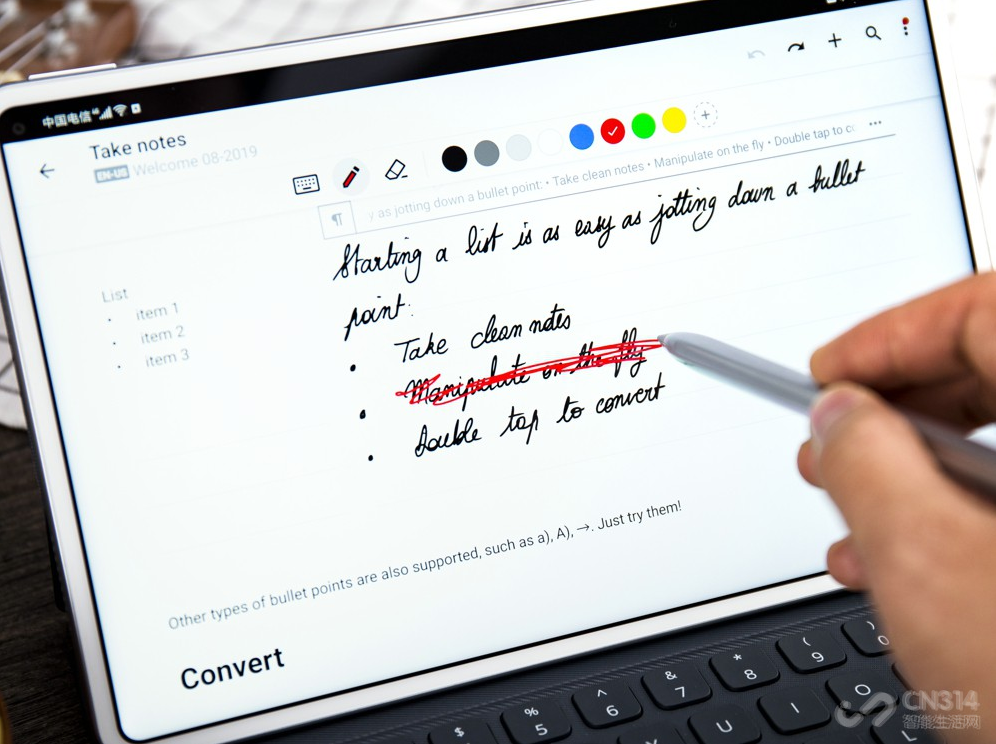 中国电信
Take notes
EN-US Welcome 08-2019
y as jotting down a bullet point: • Take clean notes • Manipulate on the fly • Double tap to c
Starting a list is as easy as jotting down a bullet
point:
• Take clean notes
• Manipulate on the fly
• Double tap to convert
List
• item 1
• item 2
• item 3
Other types of bullet points are also supported, such as a), A), →. Just try them!
Convert
$ % 5 ^ 6 & 7 * 8 ( 9 ) 0
U I O
L
CN314
智能生活网